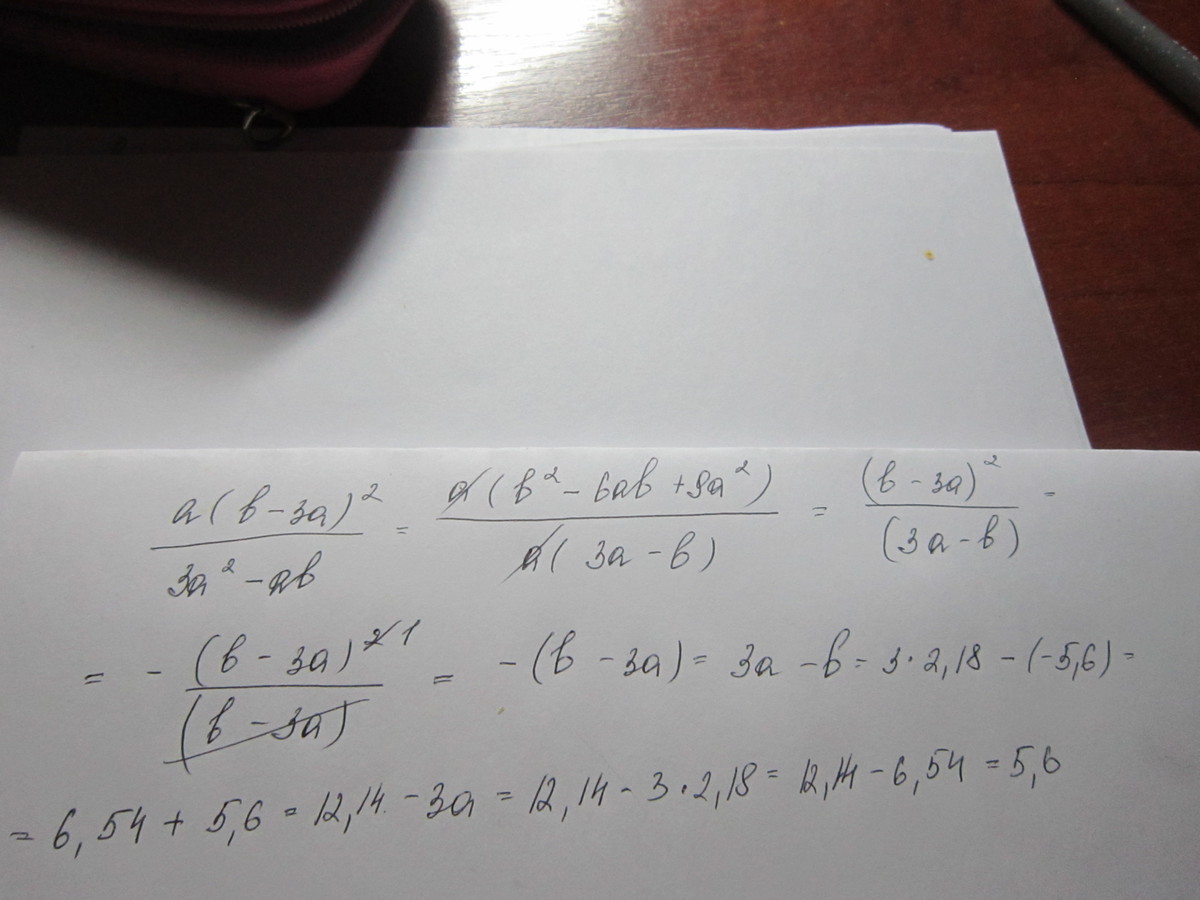 a(b-3a)² / 3a²-ab = a(b²-6ab+9a²) / a(3a-b) = (b-3a)² / (3a-b) =
= - (b-3a)² 1 / (b-3a) = -(b-3a) = 3a-b = 3·2,18-(-5,6) =
= 6,54 + 5,6 = 12,14 - 3a = 12,14 - 3·2,18 = 12,14 - 6,54 = 5,6